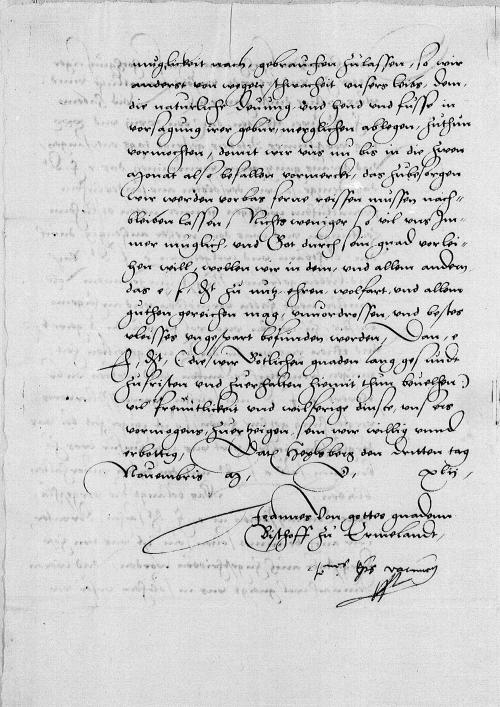 muglickeit nach, gebrauchen zu lassen, so wir
anderst von wegen schwacheit unsers leibs, dem
die naturliche deuung und hend und fusse in
vorsagung irer gebur, menglichen ablegen, zuthun
vormochten, domit wir uns nu bis in die zwen
monat also befallen vormerckt, das zubesorgen
wir werden vorbas ferne reissen mussen nach-
bleiben lassen, Nichts weniger so vil uns Im-
mer muglich, und Got durch sein gnad vorlei-
hen will, wollen wir in dem, und allem andern
das e f dt zu nutz ehren, wolfart und allem
guthen gereichen mag, unvordrossen, und bestes
vleisses ungespart befunden werden, Dan e
f dt, (die wir Gotlichen gnaden lang gesundt
zufristen und zuerhalten hiemit thun bevelhen)
vil freuntlickeit und wilferige dinste, uns
vormogens, zuertzeigen, sein wir willig unnd
erbottig, Dath Heylsberg den dritten tag
Novembris M, D, xlii,
Joannes von gottes gnaden
Bischoff zu Ermelandt,